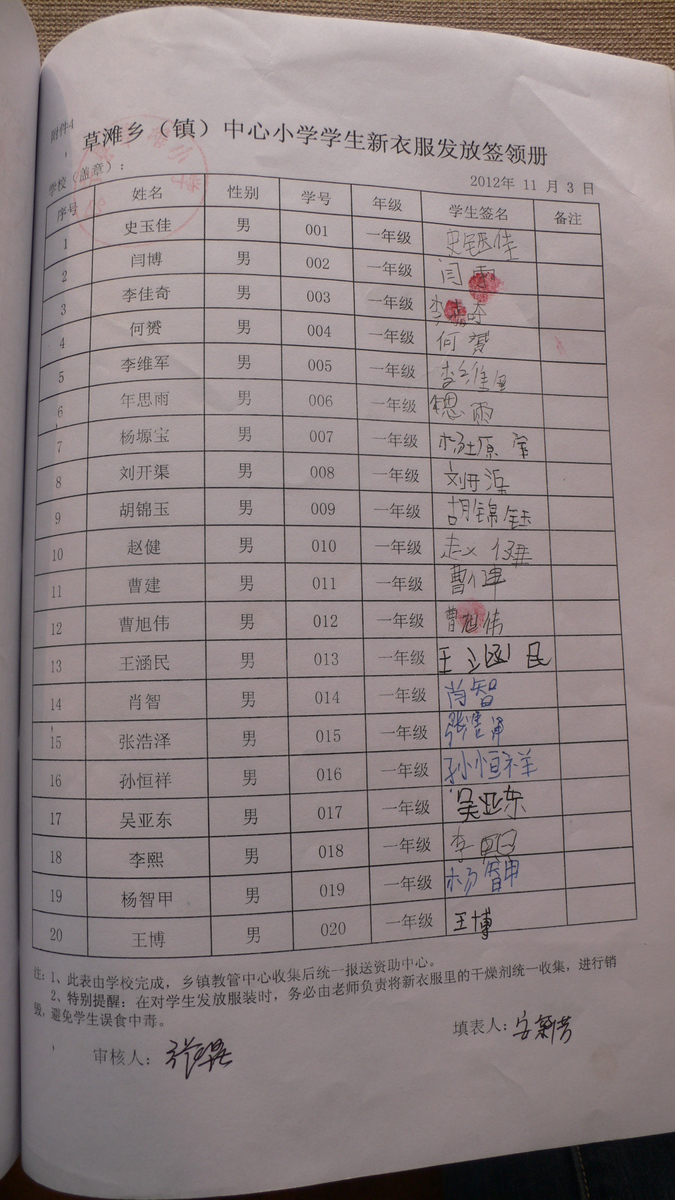 附件4
草滩乡（镇）中心小学学生新衣服发放签领册
学校（盖章）：
2012年 11 月 3 日
序号 姓名 性别 学号 年级 学生签名 备注
1 史玉佳 男 001 一年级
2 闫博 男 002 一年级 闫
3 李佳奇 男 003 一年级 李
4 何赟 男 004 一年级 何
5 李维军 男 005 一年级 李维
6 年思雨 男 006 一年级 思雨
7 杨塬宝 男 007 一年级 杨塬宝
8 刘开渠 男 008 一年级 刘开
9 胡锦玉 男 009 一年级 胡锦钰
10 赵健 男 010 一年级 赵健
11 曹建 男 011 一年级 曹
12 曹旭伟 男 012 一年级 曹旭伟
13 王涵民 男 013 一年级 王涵民
14 肖智 男 014 一年级 肖智
15 张浩泽 男 015 一年级 张
16 孙恒祥 男 016 一年级 孙恒祥
17 吴亚东 男 017 一年级 吴亚东
18 李熙 男 018 一年级 李
19 杨智甲 男 019 一年级 杨智甲
20 王博 男 020 一年级 王博
注：1、此表由学校完成，乡镇教管中心收集后统一报送资助中心。
2、特别提醒：在对学生发放服装时，务必由老师负责将新衣服里的干燥剂统一收集，进行销
毁，避免学生误食中毒。
审核人： 填表人：